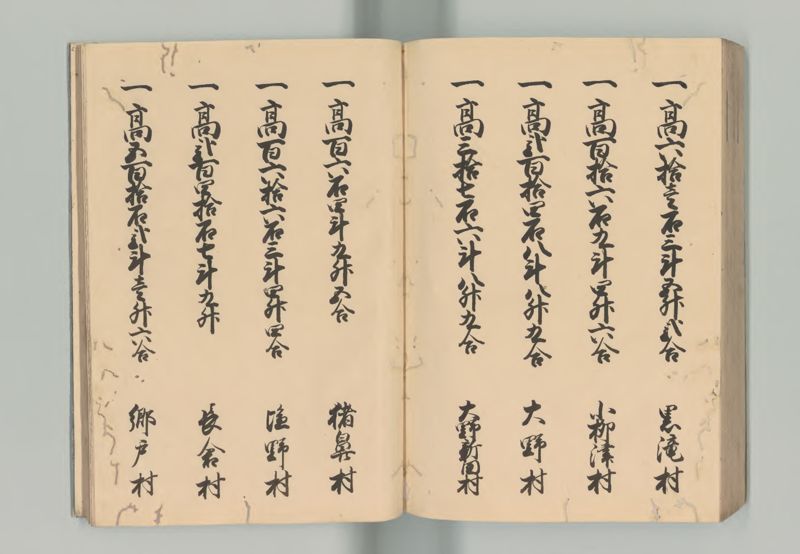 一高六拾壱石三斗五升弐合 黒滝村
一高百拾六石九斗四升六合 小柳津村
一高弐百拾四石八斗八升九合 大野村
一高三拾七石六斗八升九合 大野新田村
一高百六石四斗九升五合 猪鼻村
一高百六拾六石三斗四升四合 塩野村
一高弐百四拾石七斗九升 長倉村
一高五百拾石弐斗壱升六合 郷戸村